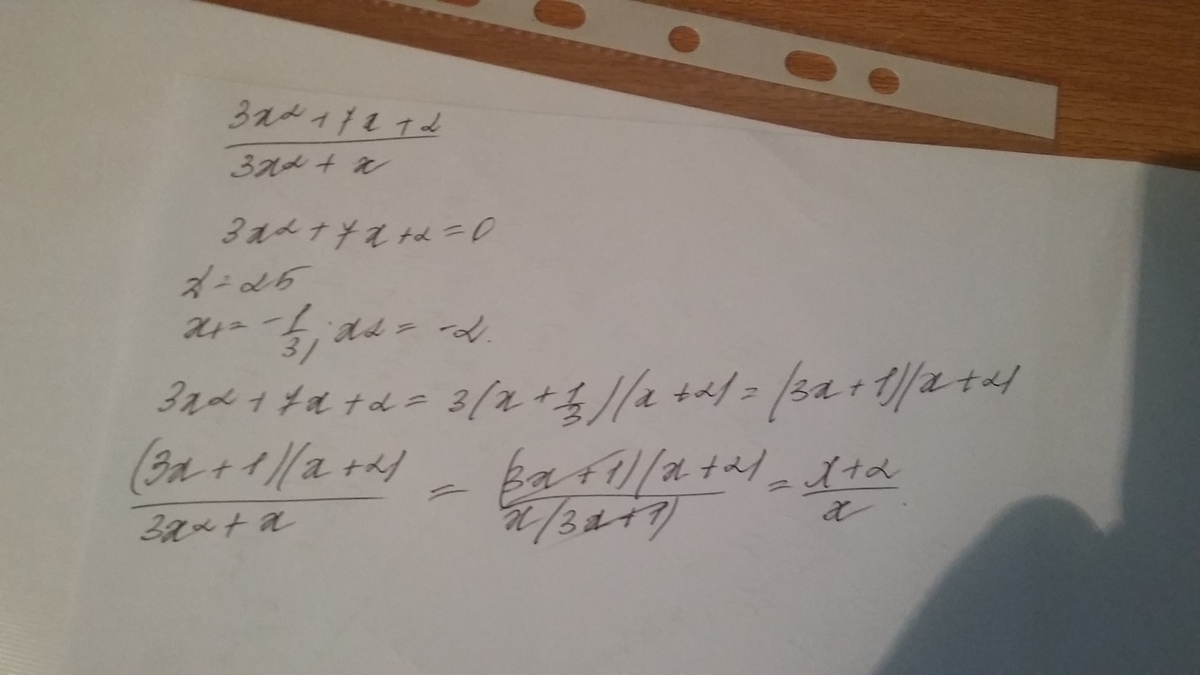 3x2 + 7x + 2
3x2 + x
3x2 + 7x + 2 = 0
D = 25
x1 = -1/3; x2 = -2.
3x2 + 7x + 2 = 3(x + 1/3)(x + 2) = (3x + 1)(x + 2)
(3x + 1)(x + 2) / 3x2 + x = (3x + 1)(x + 2) / x(3x + 1) = x + 2 / x.